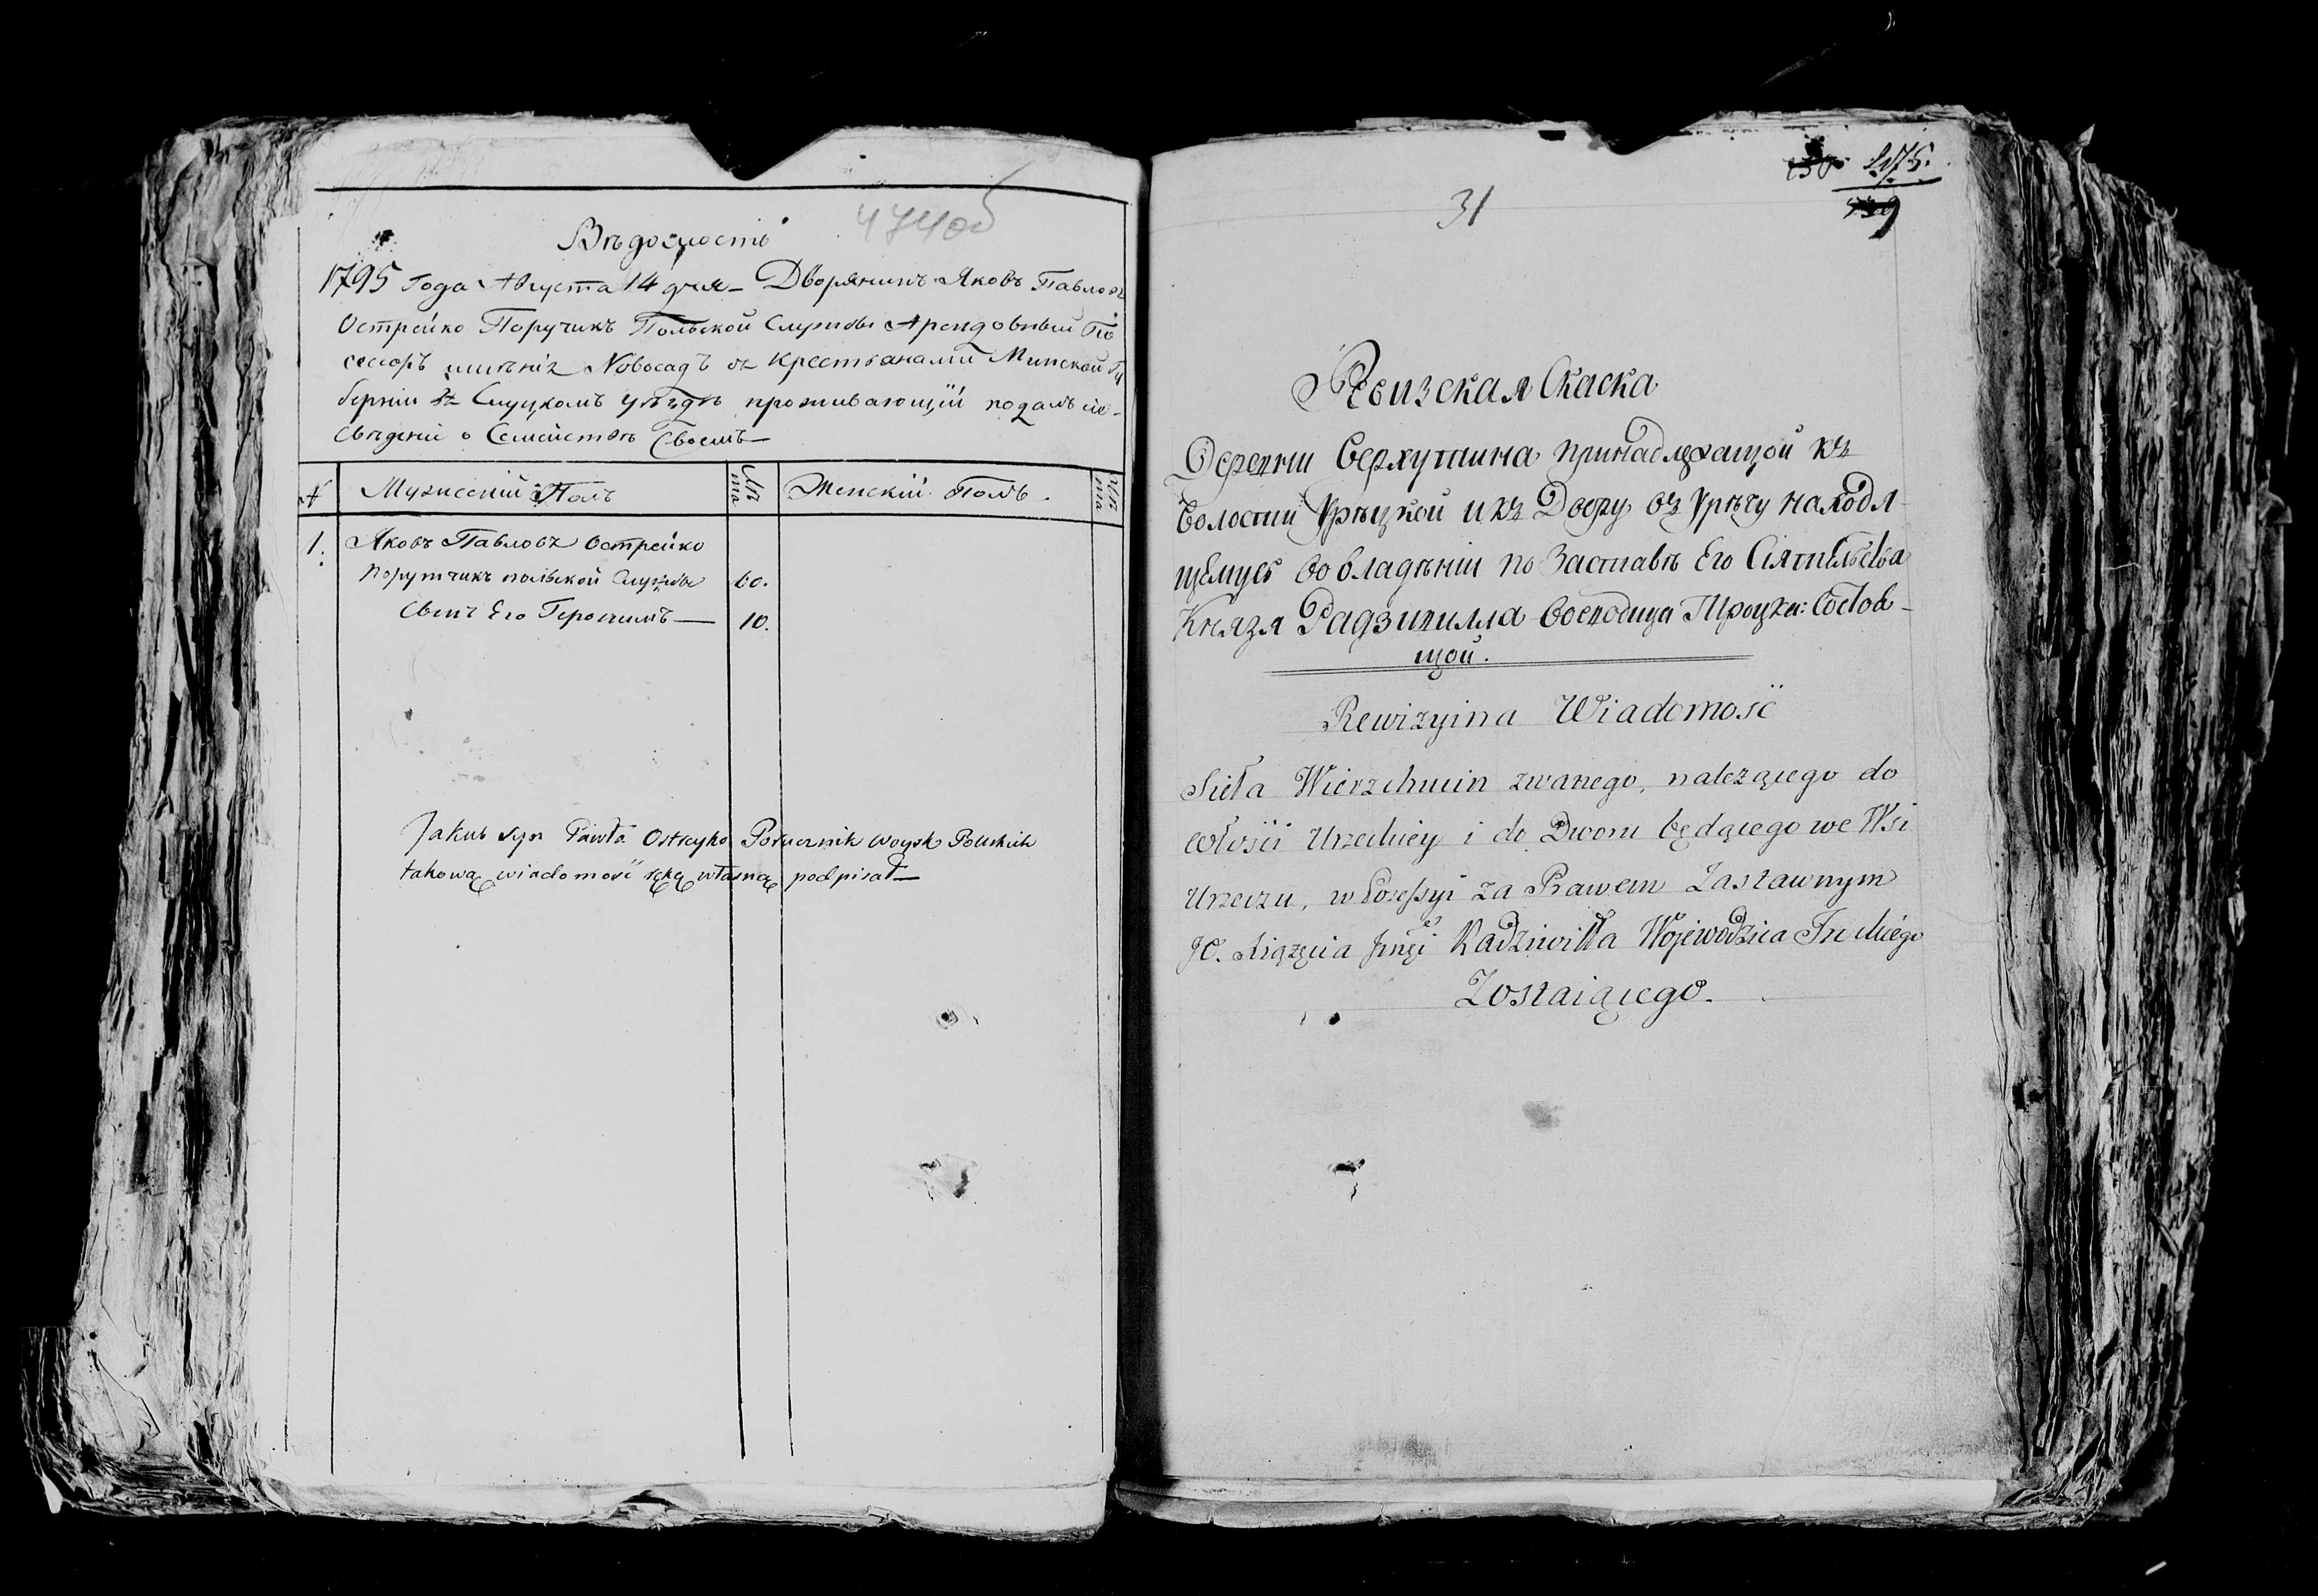 474об
Вѣдомость
1795 Года Августа 14 дня – Дворянинъ Яковъ Павловъ
Острейко Поручикъ Польской Службы Арендовный По
сесоръ имѣнія Новосадъ съ Крестьанами Минской Гу
берніи въ Слуцкомъ уѣздѣ проживающій подалъ сіе
Свѣденіе о Семействѣ Своемъ —
№ Мужескій Полъ Лѣ та Женскій Полъ. Лѣ та
1. Яковъ Павловъ Острейко
порутчикъ польской Службы 60.
Сынъ Его Геронимъ — 10.
Jakub syn Pawła Ostreyko Porucznik woysk Polskich
takową wiadomość ręką własną podpisał —
31
475.
Ревизская Скаска
Деревни Верхутина принадлежащой къ
Волости Урѣцкой и къ Двору въ Урѣчу находя-
щемусь во владѣніи по Заставѣ Его Сіятельства
Князя Радзивилла Воеводица Троцка: Состов-
щой.
Rewizyina Wiadomość
Sieła Wierzchucin zwanego, należącego do
Włości Urzeckiey i do Dworu będącego we Wsi
Urzeczu, w Possessyi za Prawem Zastawnym
JO. Xiążęcia Radziwiłła Wojewodzica Trockiégo
Zostaiącego.